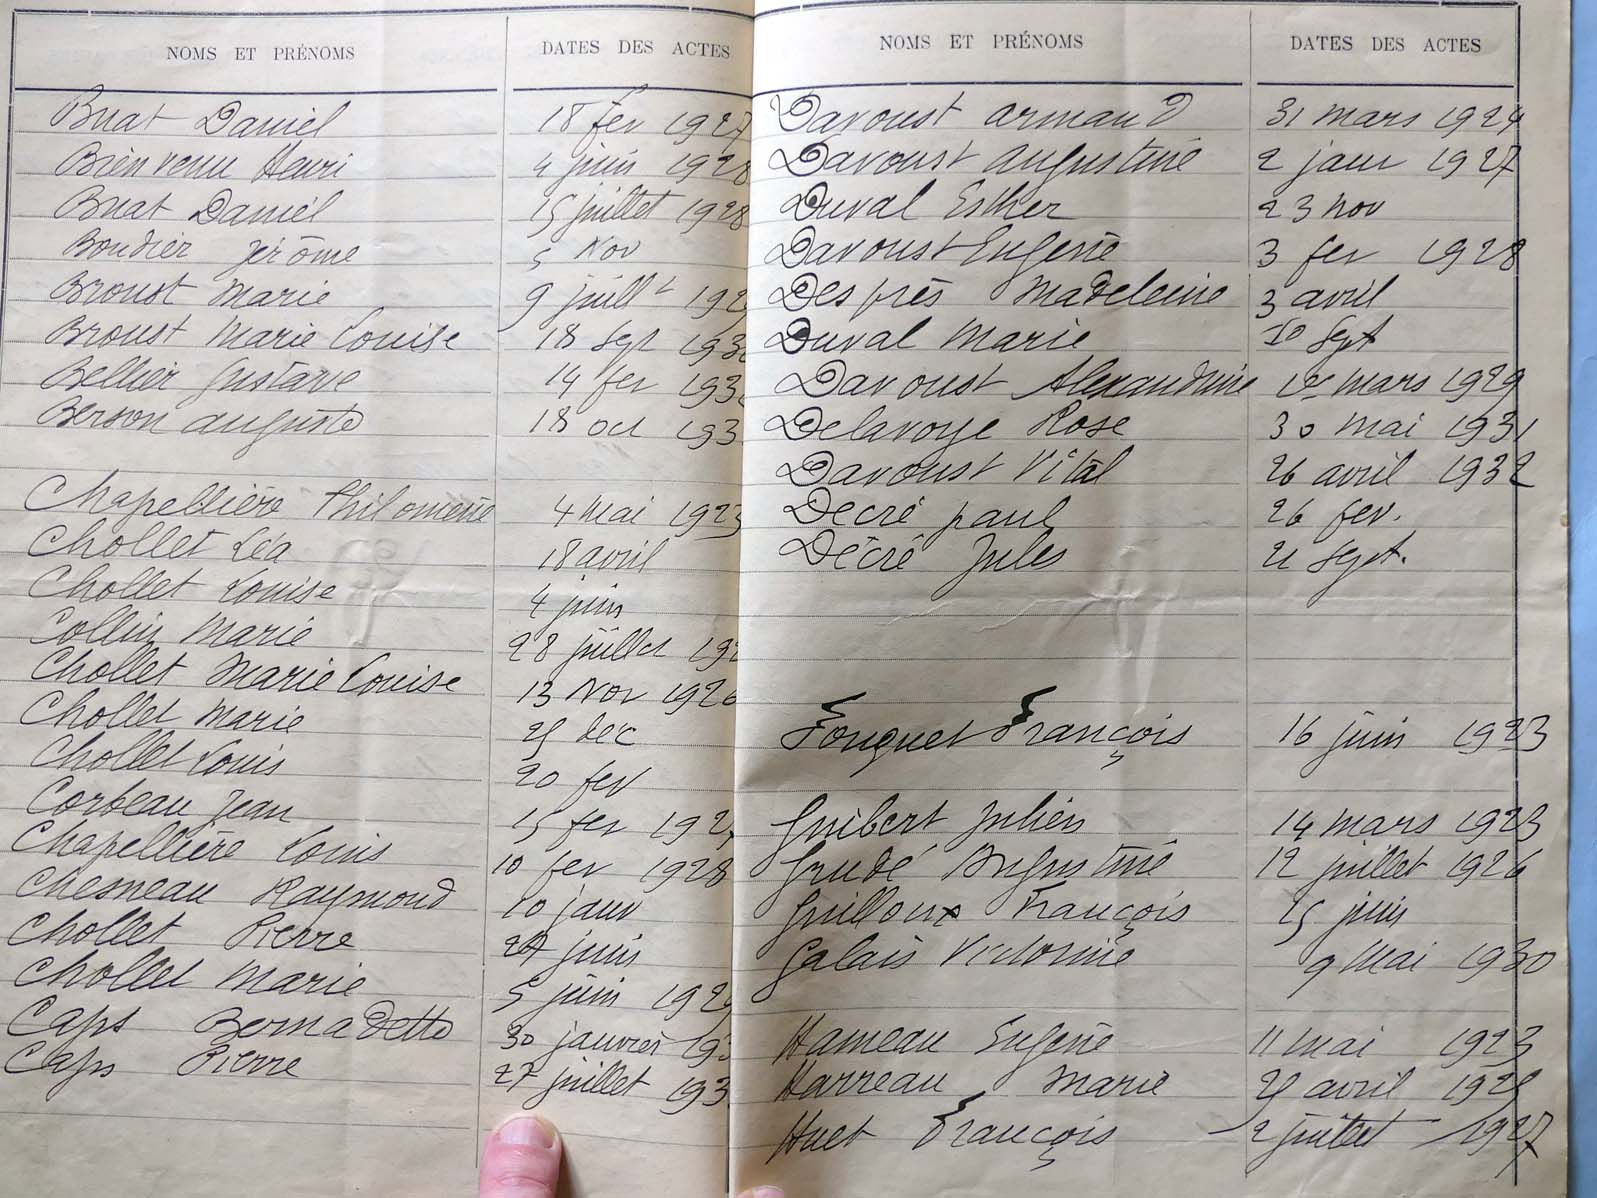 NOMS ET PRÉNOMS DATES DES ACTES
Buat Daniel 18 fev 1927
Bienvenu Henri 4 juin 1928
Buat Daniel 15 juillet 1928
Boudier Jérôme 5 Nov
Broust Marie 9 juillt 192
Broust Marie Louise 18 sept 193
Bellier Gustave 14 fev 193
Berson Auguste 18 oct 193
Chapellière Philomène 4 mai 1923
Chollet Léa 18 avril
Chollet Louise 4 juin
Collin Marie 28 juillet 192
Chollet Marie Louise 13 Nov 1926
Chollet Marie 25 dec
Chollet Louis 20 fev
Corbeau Jean 15 fev 1927
Chapellière Louis 10 fev 1928
Chesneau Raymond 10 janv
Chollet Pierre 27 juin
Chollet Marie 5 juin 1929
Caps Bernadette 30 janvier 193
Caps Pierre 27 juillet 193
NOMS ET PRÉNOMS DATES DES ACTES
Davoust Armand 31 mars 1924
Davoust Augustine 2 janv 1927
Duval Esther 23 nov
Davoust Eugenie 3 fev 1928
Després Madeleine 3 avril
Duval Marie 10 sept
Davoust Alexandrine 1er mars 1929
Delavoye Rose 30 mai 1931
Davoust Vital 26 avril 1932
Decré paul 26 fev.
Décré Jules 21 sept.
Fouquet François 16 juin 1923
Guibert Julien 14 mars 1923
Grudé Augustine 12 juillet 1926
Guilloux François 25 juin
Galais Victorine 9 Mai 1930
Hameau Eugene 11 mai 1923
Harreau Marie 25 avril 1925
Huet François 2 juillet 1927